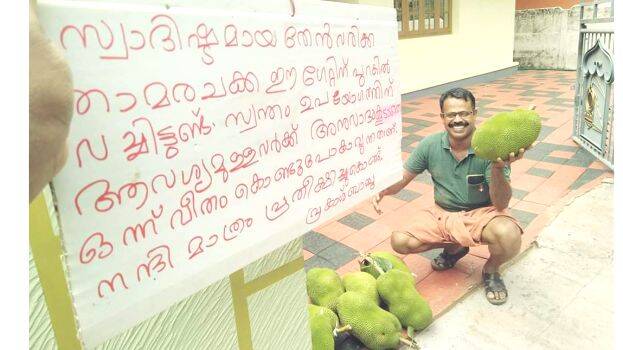 സ്വാദിഷ്ടമായ തേൻവരിക്ക
താമരചക്ക ഈ ഗേറ്റിന് പുറകിൽ
വച്ചിട്ടുണ്ട്. സ്വന്തം ഉപയോഗത്തിന്
ആവശ്യമുള്ളവർക്ക് അനുവാദം
ഒന്ന് വീതം കൊണ്ടുപോകാവുന്നതാണ്.
നന്ദി മാത്രം പ്രതീക്ഷിച്ചുകൊണ്ട്.